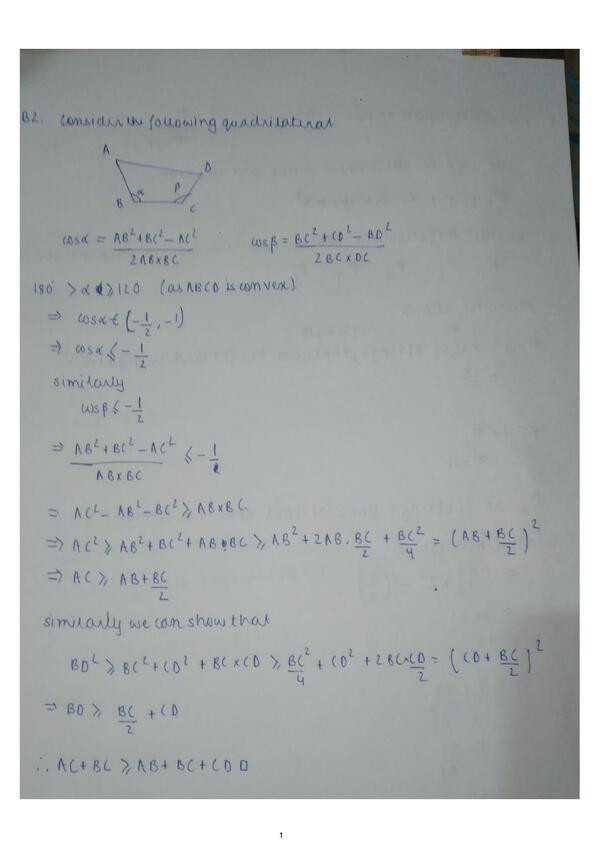 B2. Consider the following quadrilateral
A
D
α
β
B
C
cosα = (AB² + BC² − AC²) / (2AB×BC)    cosβ = (BC² + CD² − BD²) / (2BC×DC)
180° > α ≥ 120 (as ABCD is convex)
⇒ cosα ∈ (−1/2, −1)
⇒ cosα ≤ −1/2
similarly
cosβ ≤ −1/2
⇒ (AB² + BC² − AC²) / (AB×BC) ≤ −1
⇒ AC² − AB² − BC² ≥ AB×BC
⇒ AC² ≥ AB² + BC² + AB·BC ≥ AB² + 2AB·BC/2 + BC²/4 = (AB + BC/2)²
⇒ AC ≥ AB + BC/2
similarly we can show that
BD² ≥ BC² + CD² + BC×CD ≥ BC²/4 + CD² + 2BC×CD/2 = (CD + BC/2)²
⇒ BD ≥ BC/2 + CD
∴ AC + BC ≥ AB + BC + CD □
1